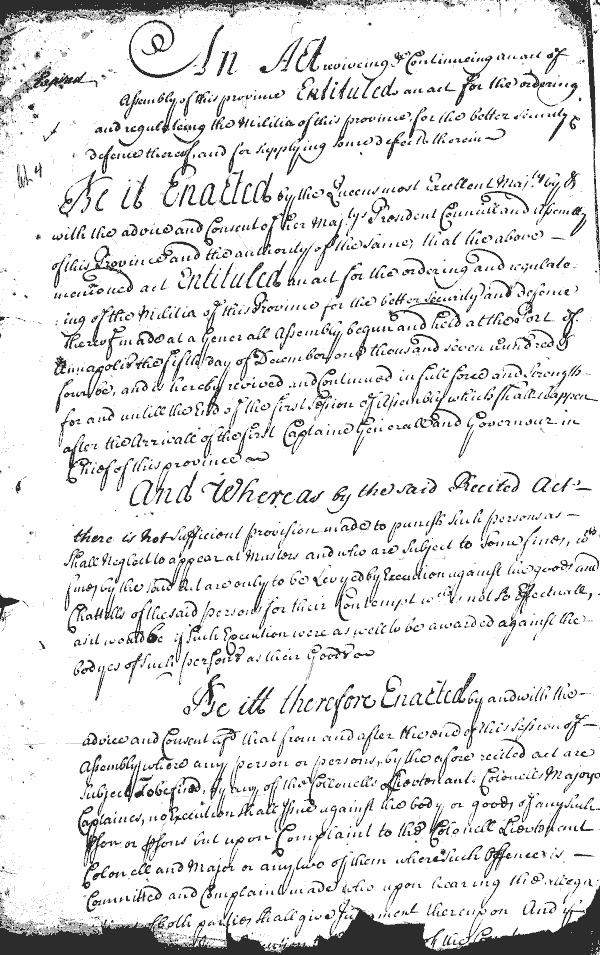 An Act reviveing & Continueing an act of
Expired
Assembly of this province Entituled an act for the ordering
and regulateing the Militia of this province, for the better security &
defence thereof, and for supplying some defects therein
Be it Enacted by the Queens most Excellent Maj.ty by &
with the advice and Consent of her Maj.tys President Councill and Assembly
of this Province and the authority of the same, that the above
mentioned act Entituled an act for the ordering and regulate-
ing of the Militia of this Province for the better security and defence
thereof made at a Generall Assembly begun and held at the Port of
Annapolis the fifth day of December one thousand seven hundred &
four be, and is hereby revived and Continued in full force and strength
for and untill the End of the first Session of Assembly which shall happen
after the Arrivall of the first Captaine Generall and Governour in
Chief of this province
And Whereas by the said Recited Act
there is not sufficient provision made to punish such persons as
shall Neglect to appear at Musters and who are subject to some fines, wch
fines by the said act are only to be Levyed by Execution against the goods and
Chattells of the said persons for their Contempt wch is not so Effectuall,
as it would be if such Execution were as well to be awarded against the
bodyes of such persons as their Goods
Be itt therefore Enacted by and with the
advice and Consent afsd that from and after the end of this Session of
Assembly where any person or persons, by the afore recited act are
subject to be fined, by any of the Collonells Lieutenant Colonells Majors
Captaines, no Execution shall Issue against the body or goods of any such
pson or psons but upon Complaint to the Colonell Lieutenant
Colonell and Major or any two of them where such Offence is
Committed and Complaint made who upon hearing the allega-
of both parties shall give Judgment thereupon And if
the